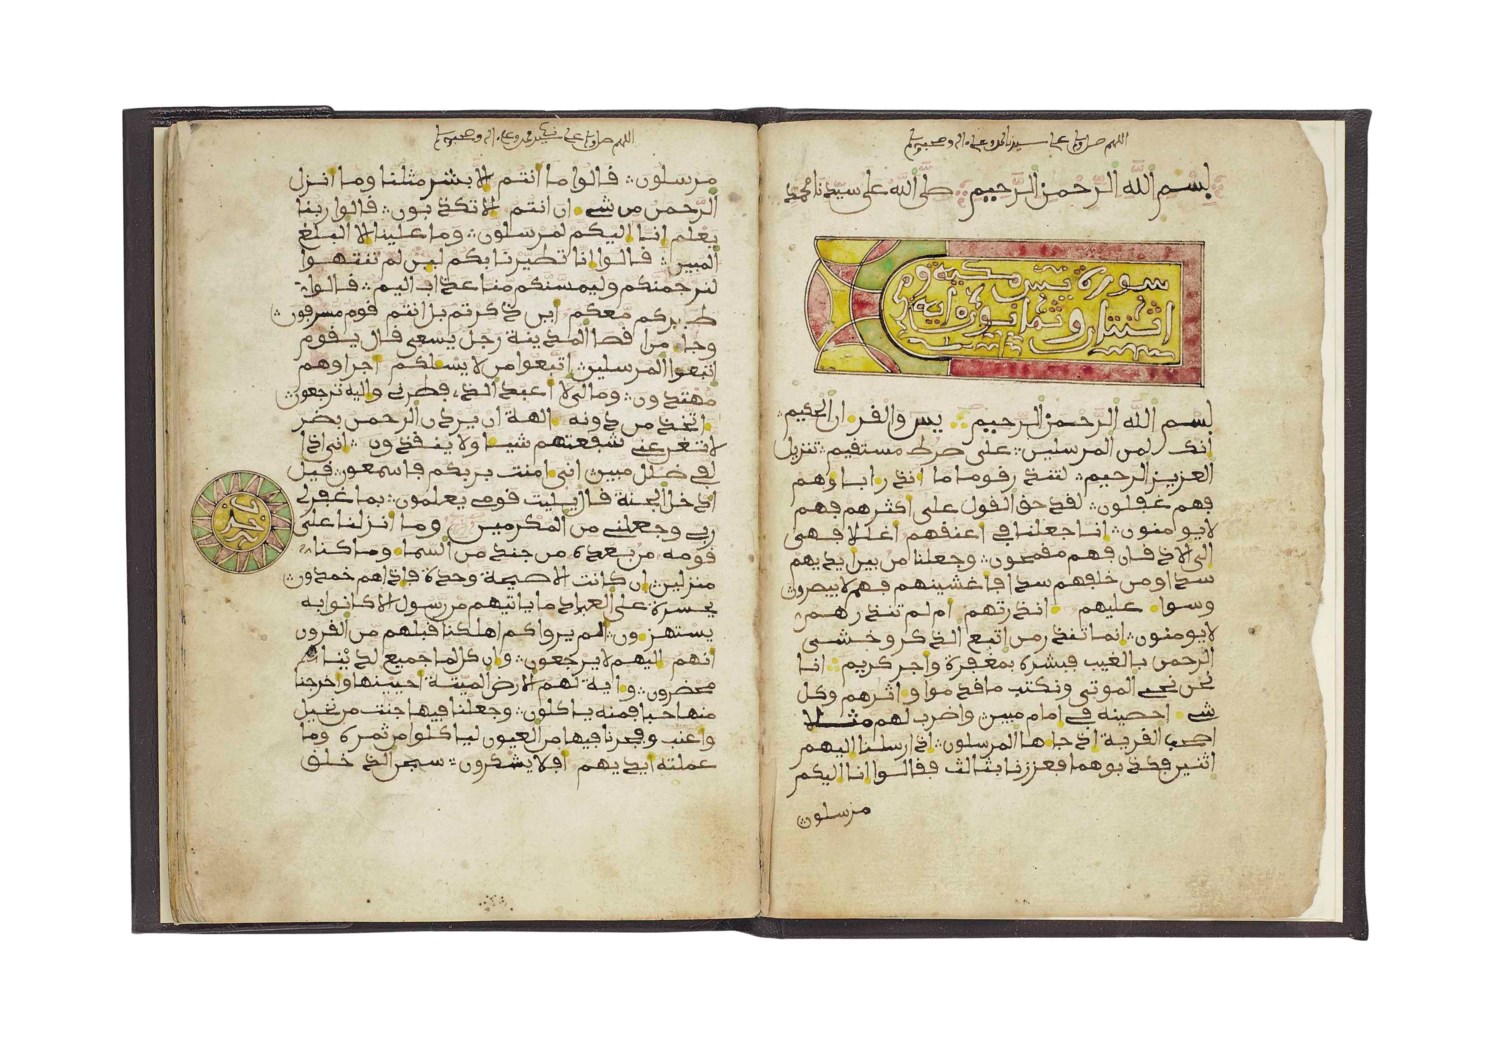 اللهم صل وسلم على سيدنا محمد وعلى ءاله وصحبه وسلم
بسم الله الرحمن الرحيم صلى الله على سيدنا محمد
سورة يس مكية وهي
اثنتان وثمانون ءاية
بسم الله الرحمن الرحيم يس والقرءان الحكيم
انك لمن المرسلين على صرط مستقيم تنزيل
العزيز الرحيم لتنذر قوما ما انذر ءاباوهم
فهم غفلون لقد حق القول على اكثرهم فهم
لا يومنون انا جعلنا في اعنقهم اغللا فهى
الى الاذقان فهم مقمحون وجعلنا من بين ايديهم
سدا ومن خلفهم سدا فاغشينهم فهم لا يبصرون
وسواء عليهم ءانذرتهم ام لم تنذرهم
لا يومنون انما تنذر من اتبع الذكر وخشى
الرحمن بالغيب فبشره بمغفرة واجر كريم انا
نحن نحى الموتى ونكتب ما قدموا وءاثرهم وكل
شىء احصينه في امام مبين واضرب لهم مثلا
اصحب القرية اذ جاءها المرسلون اذ ارسلنا اليهم
اثنين فكذبوهما فعززنا بثالث فقالوا انا اليكم
مرسلون
اللهم صل وسلم على سيدنا محمد وعلى ءاله وصحبه وسلم
مرسلون قالوا ما انتم الا بشر مثلنا وما انزل
الرحمن من شىء ان انتم الا تكذبون قالوا ربنا
يعلم انا اليكم لمرسلون وما علينا الا البلغ
المبين قالوا انا تطيرنا بكم لين لم تنتهوا
لنرجمنكم وليمسنكم منا عذاب اليم قالوا
طيركم معكم اين ذكرتم بل انتم قوم مسرفون
وجاء من اقصا المدينة رجل يسعى قال يقوم
اتبعوا المرسلين اتبعوا من لا يسلكم اجرا وهم
مهتدون وما لى لا اعبد الذى فطرنى واليه ترجعون
ءاتخذ من دونه ءالهة ان يردن الرحمن بضر
لا تغن عنى شفعتهم شيا ولا ينقذون انى اذا
لفى ضلل مبين انى ءامنت بربكم فاسمعون قيل
ادخل الجنة قال يليت قومى يعلمون بما غفر لى
ربى وجعلنى من المكرمين وما انزلنا على
قومه من بعده من جند من السماء وما كنا
منزلين ان كانت الا صيحة وحدة فاذا هم خمدون
يحسرة على العباد ما ياتيهم من رسول الا كانوا به
يستهزءون الم يروا كم اهلكنا قبلهم من القرون
انهم اليهم لا يرجعون وان كل لما جميع لدينا
محضرون وءاية لهم الارض الميتة احيينها واخرجنا
منها حبا فمنه ياكلون وجعلنا فيها جنت من نخيل
واعنب وفجرنا فيها من العيون لياكلوا من ثمره وما
عملته ايديهم افلا يشكرون سبحن الذى خلق
حزب